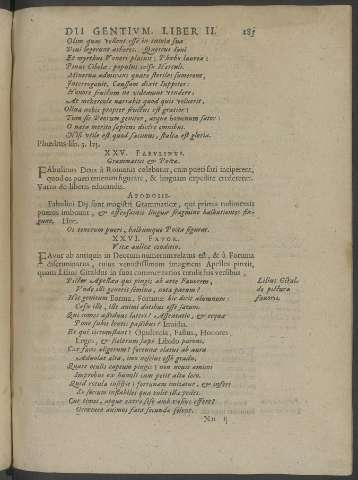 DII GENTIVM. LIBER II. 283
Olim quas vellent esse in tutela sua
Diui legerunt arbores. Quercus Ioui
Et myrthus Veneri placuit; Phœbo laurea:
Pinus Cibelæ: populus celsa Herculi.
Minerua admirans quare steriles sumerent,
Interrogauit. Caussam dixit Iuppiter:
Honore fructum ne videamur vendere.
At mehercule narrabit quod quis voluerit,
Oliua nobis propter fructus est gratior:
Tum sic Deûm genitor, atque hominum sator:
O nata merito sapiens dicere omnibus.
Nisi vtile est quod facimus, stulta est gloria.
Phædrus lib. 3.
XXV. FABVLINVS.
Grammaticus & Poëta.
FAbulinus Deus à Romanis celebratur, cum pueri fari inciperent,
quod os pueri tenerum figuraret, & linguam expedite crederetur.
Varro de liberis educandis.
APODOSIS.
Fabulini Dij sunt magistri Grammaticæ, qui prima rudimenta
pueros imbuunt, &
Hor.
Os tenerum pueri, balbumque Poëta figurat.
XXVI. FAVOR.
Vitæ aulicæ conditio.
FAvor ab antiquis in Deorum numerum relatus est, & à Fortuna
discriminatus, cuius venustissimam imaginem Apelles pinxit,
quam Lilius Giraldus in suos commentarios retulit his versibus,
Pictor Apellæa qui pingis ab arte Fauorem,
Vnde illi generis semina, nota parum?
Hic genitum Forma, Fortunæ hic dicit alumnum:
Casu ille, ille animi dotibus esse satum.
Qui comes assiduus lateri? Assentatio, &
Pone subit lentis passibus? Inuidia.
Et qui circumstant? Opulentia, Fastus, Honores
Leges, & scelerum sapè Libido parens.
Cur facis aligerum? fortunæ elatus ab aura
Aduolat alta, imo nescius esse gradu.
Quare oculis captum pingis? non nouit amicos
Improbus ex humili cum petit alta loco.
Quid rotula insistit? fortunam imitatur, &
Ex sursum instabilis qua tulit illa pedes.
Cur timet, atque
esse vultus effert?
Occæcare animos fata secunda solent.
Lilius Gyral.
de pictura
fauoris.
Nn ij